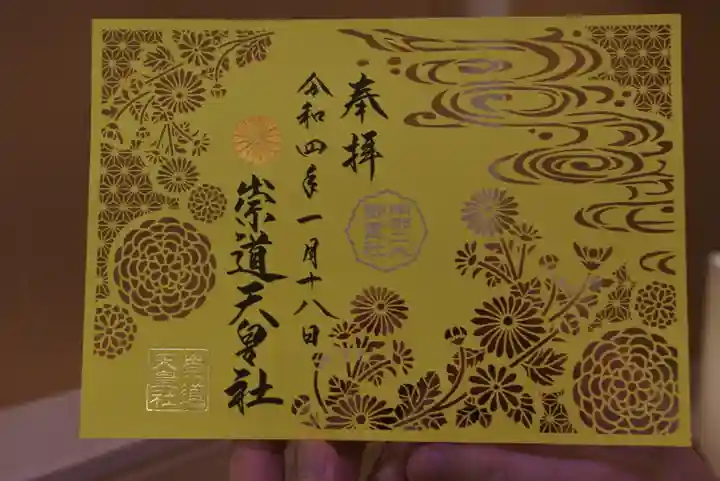 奉拝
令和四年一月十八日
崇道天皇社
崇道
天皇社